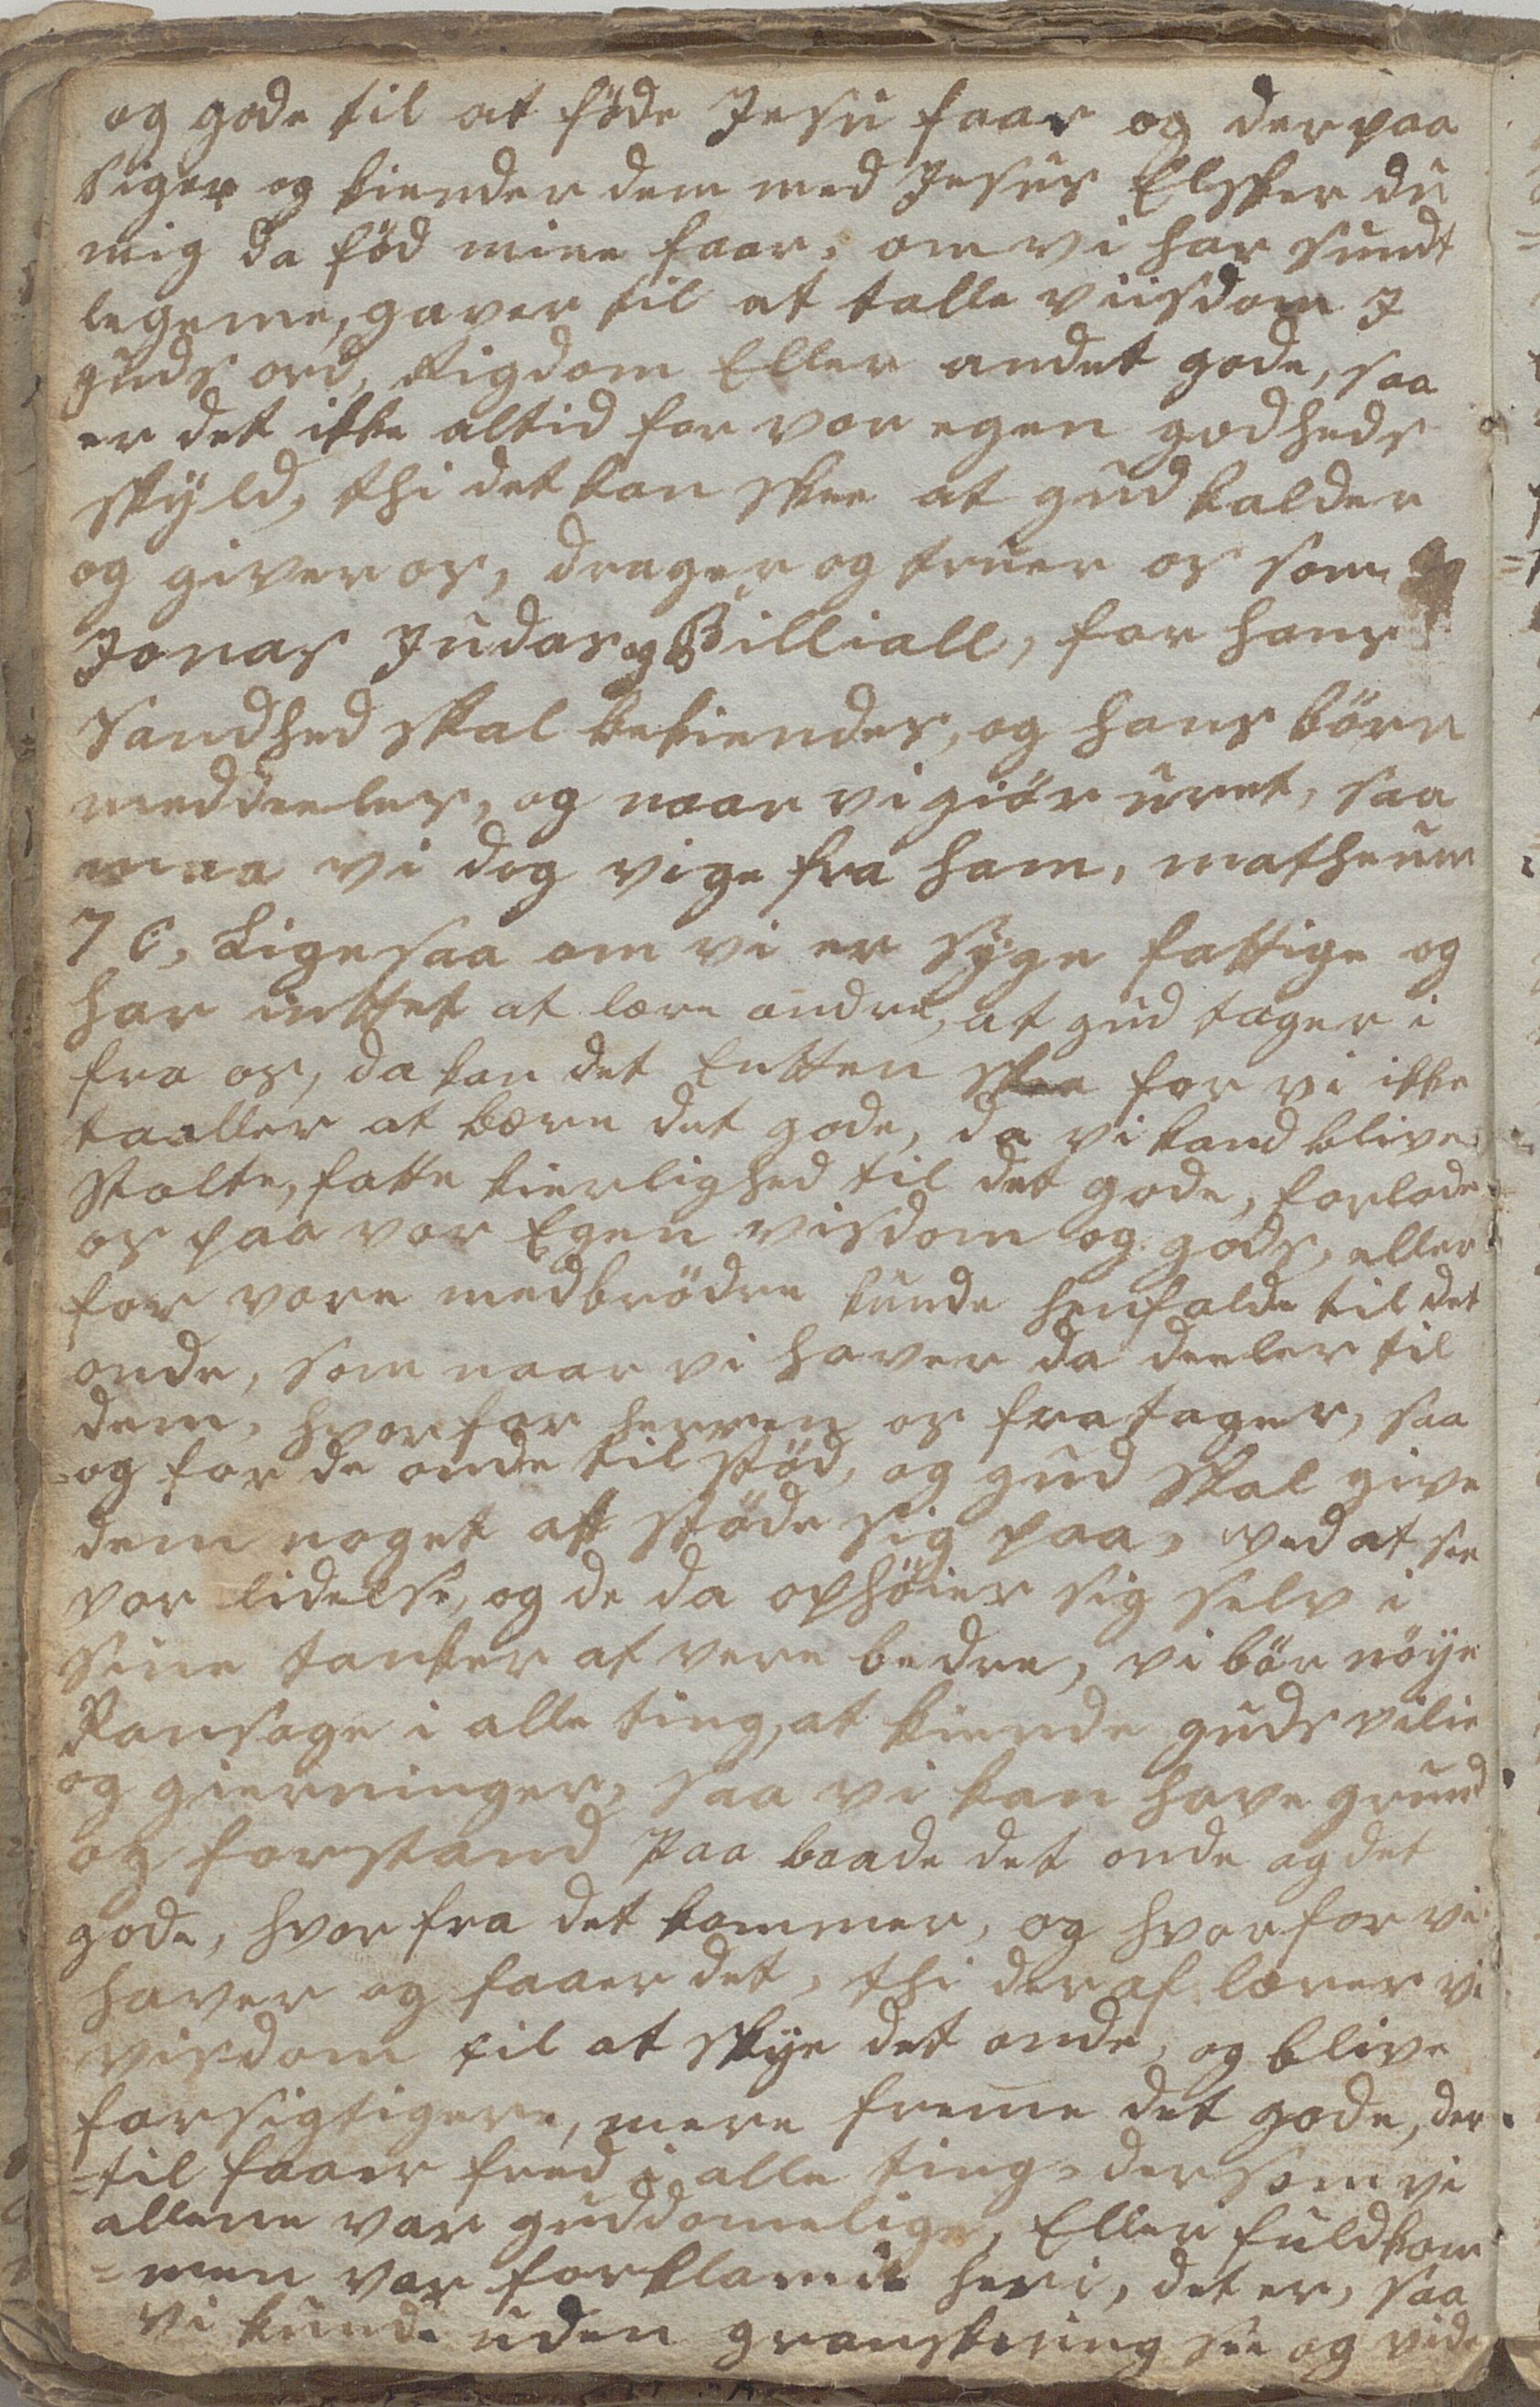 og gode til at föde Jesu faar og der paa
siger og kiender dem med Jesus Elsker du
mig da föd mine faar, om vi har sundt
legeme, gaver til at talle viisdom J
guds ord, Rigdom Eller andet gode, saa
er det ikke altid for vor egen godheds
skÿld, thi det kan skee at gud kalder
og giver os, drager og truer os som
Jonas Judas og Billiall, for hans
Sandhed skal bekiendes, og hans börn
meddeeles, og naar vi giör uret, saa
maa vi dog vige fra ham, matheum
7 C, Ligesaa om vi er sÿge fattige og
har inttet at lære andre, at gud tager i
fra os, da kan det Entten skee for vi ikke
taaller at bære det gode, da vi kand blive
stolte, fatte kierlighed til det gode, forlade
os paa vor Egen visdom og gods, eller
for vore medbrödre kunde henfalde til det
onde, som naar vi haver da deeler til
dem, hvorfor herren os fratager, saa
og for de onde til stöd, og gud skal give
dem noget at stöde sig paa, ved at see
vor lidelse, og de da ophöier sig selv i
sine tanker at vere bedre, vi bör nöye
Ransage i alle ting, at kiende guds vilie
og gierninger, saa vi kan have grund
og forstand paa baade det onde og det
gode, hvor fra det kommer, og hvorfor vi
haver og faaer det, thi deraf lærer vi
visdom til at skye det onde, og blive
forsigtigere, mere freme det gode, der
=til faaer fred i alle ting, dersom vi
allene var guddomelige, Eller fuldkom
=men var forklarede heri, det er, saa
vi kunde uden granskning see og vide